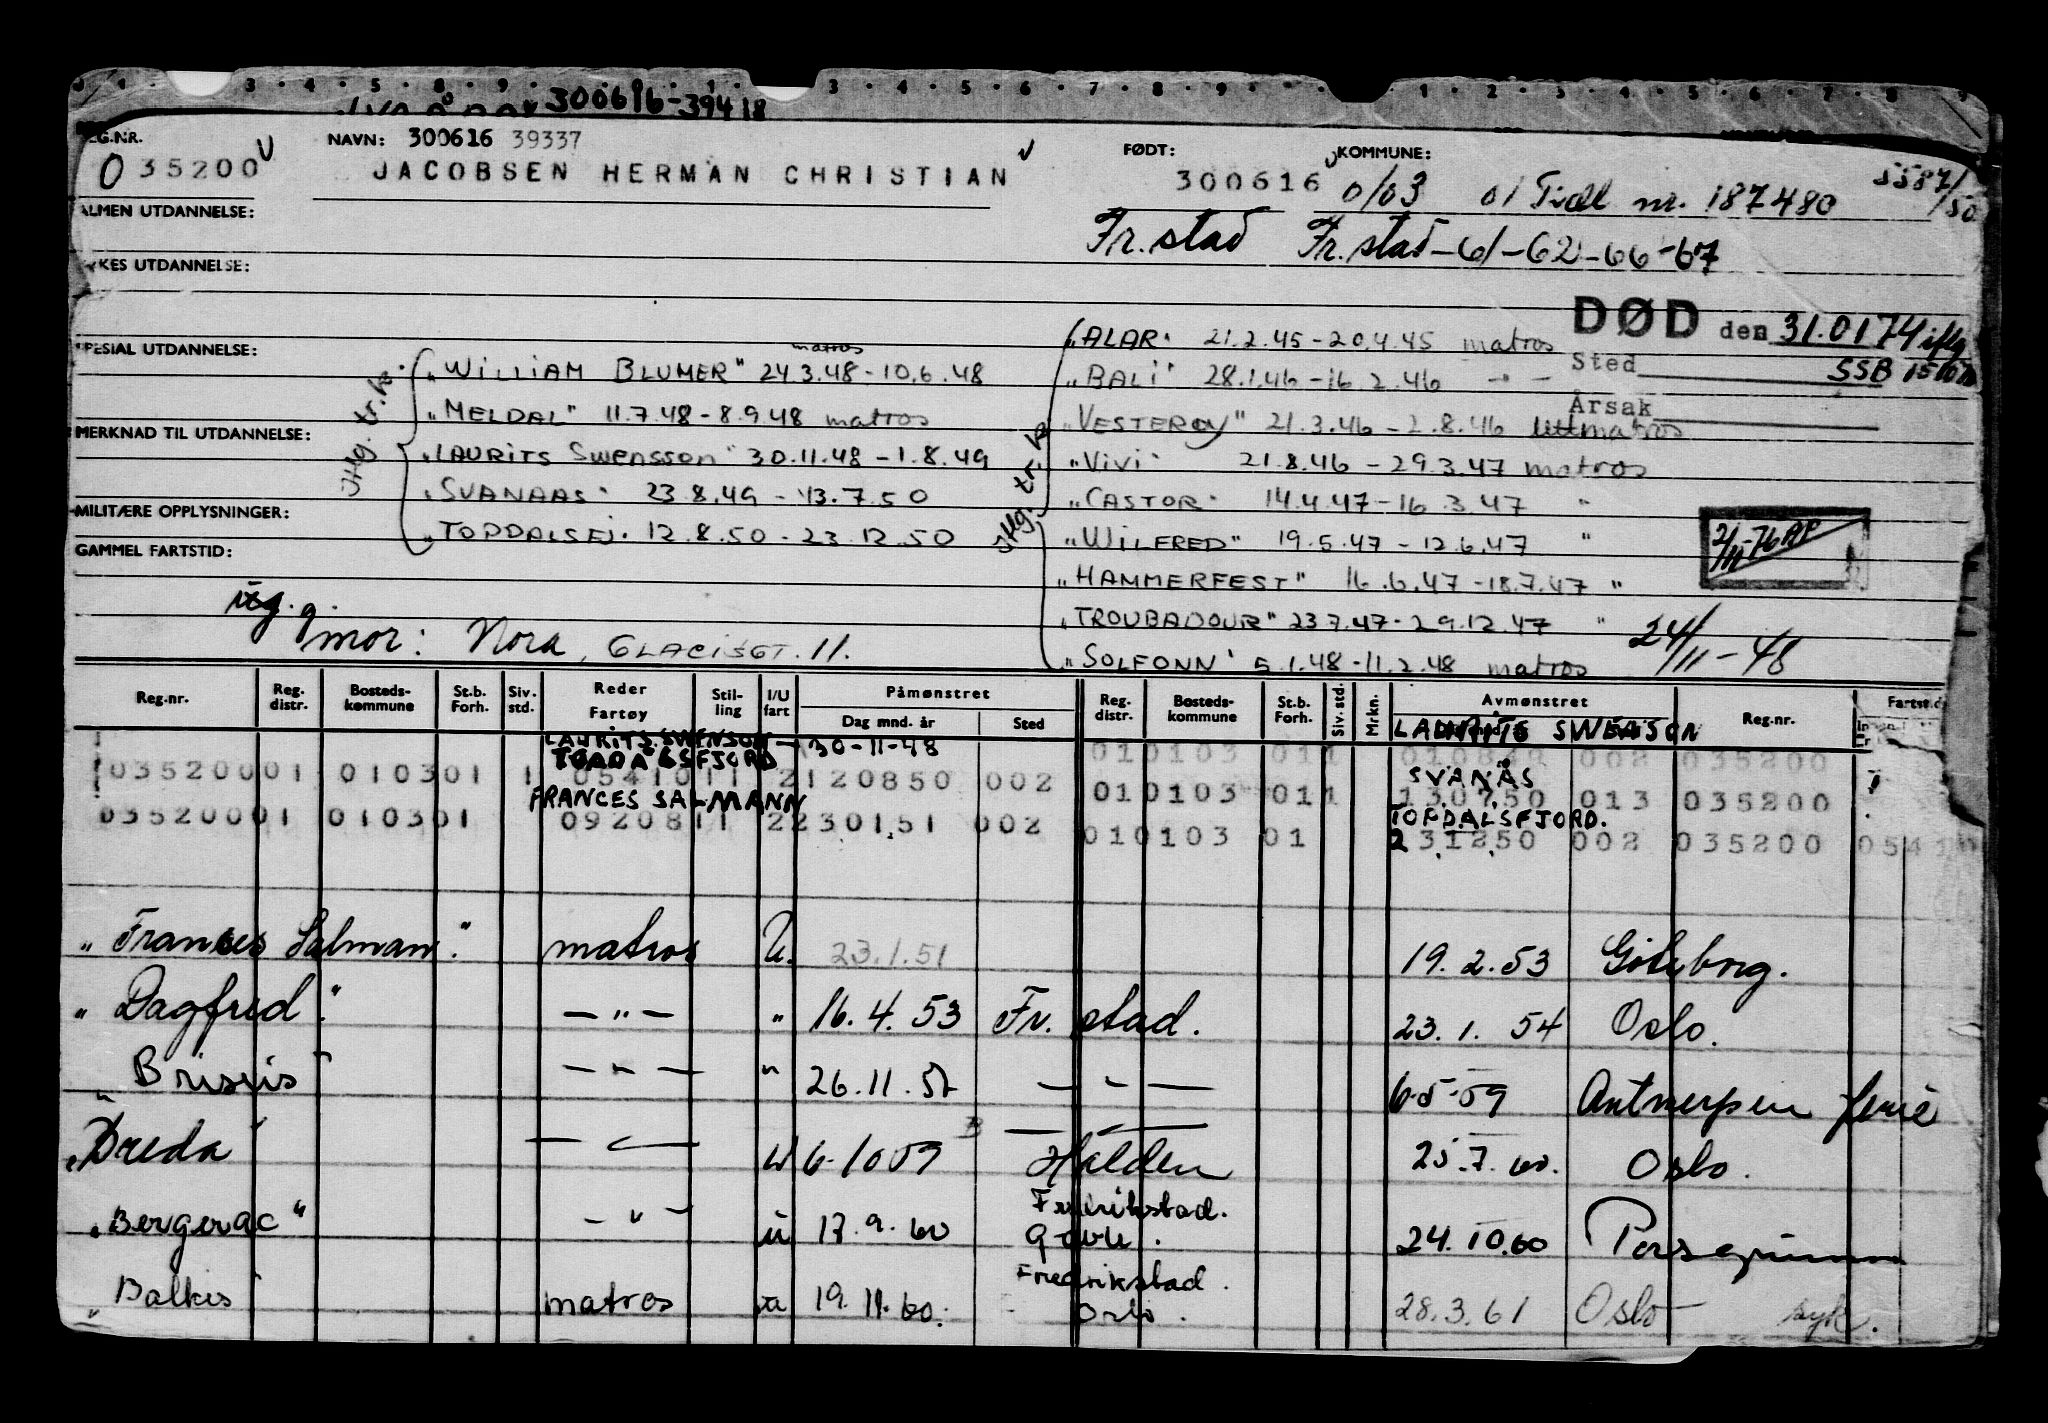 300616-39418
REG.NR. NAVN: 300616 39337 FØDT: KOMMUNE:
0 35200 V JACOBSEN HERMAN CHRISTIAN V 300616 V 0103 01 Tidl nr. 187480 5587/50
ALMEN UTDANNELSE:
Fr.stad Fr.stad-61-62-66-67
YRKES UTDANNELSE:
DØD den 31.0174 iflg
Sted SSB
Årsak
SPESIAL UTDANNELSE:
MERKNAD TIL UTDANNELSE:
MILITÆRE OPPLYSNINGER:
GAMMEL FARTSTID:
Iflg. tr.k.
matros
"WILLIAM BLUMER" 24.3.48-10.6.48
"MELDAL" 11.7.48-8.9.48 matros
"LAURITS Swensson" 30.11.48-1.8.49
"SVANAAS" 23.8.49-13.7.50
"TOPDALSFJ. 12.8.50-23.12.50
Iflg. tr.k.
"ALAR" 21.2.45-20.4.45 matros
"BALI" 28.1.46-16.2.46 - " -
"VESTERØY" 21.3.46-2.8.46 matros
"VIVI" 21.8.46-29.3.47 matros
"CASTOR" 14.4.47-16.3.47 "
"WILFRED" 19.5.47-12.6.47 "
"HAMMERFEST" 16.6.47-18.7.47 "
"TROUBADOUR" 23.7.47-29.12.47 "
"SOLFONN" 5.1.48-11.2.48 matros
2/11-76
24/11-48
mor: Nora, GLACISGT. 11.
Reg.nr. Reg. distr. Bosteds-kommune St.b. Forh. Siv. std. Reder Fartøy Stil-ling I/U fart Påmønstret Dag mnd. år Sted Reg. distr. Bosteds-kommune St.b. Forh. Siv. std. Mrkn. Avmønstret Reg.nr. Fartst.
LAURITS SWENSON 30-11-48 010103 011 LAURITS SWENSON 010849 002 035200
03520001 010301 1 TOPDALSFJORD 0541011 2 120850 002 010103 011 SVANÅS 130750 013 035200
03520001 010301 FRANCES SALMANN 0920811 2 230151 002 010103 01 TOPDALSFJORD. 231250 002 035200 054
"Frances Salman." matros U. 23.1.51 19.2.53 Göteborg.
"Dagfred". - " - " 16.4.53 Fr. stad. 23.1.54 Oslo.
"Briseis" - " - " 26.11.57 - " - 6-5-59 Antwerpen ferie
"Breda" - " - U 6-10 59 Halden 25.7.60. Oslo.
"Bergerac" - " - U 17.9.60 Fredrikstad. Gävle. 24.10.60 Porsgrunn
"Balkis" matros U 19.11.60. Fredrikstad. Oslo. 28.3.61 Oslo syk.